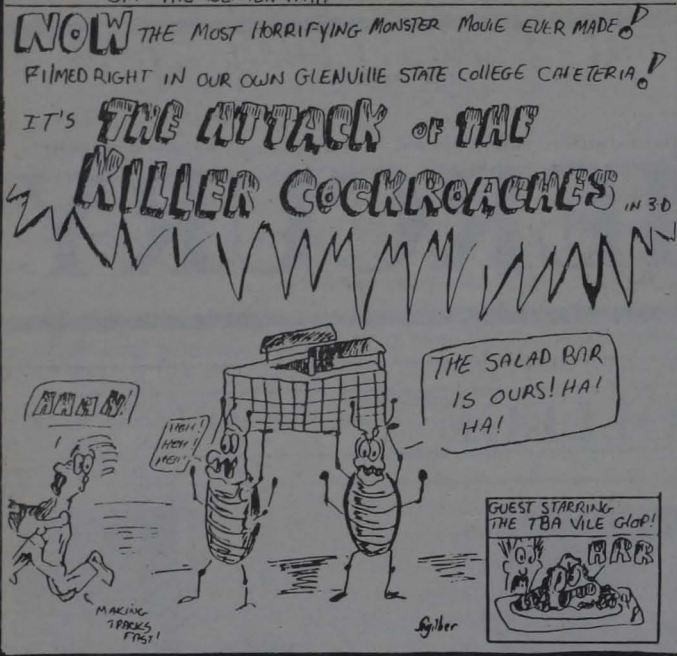 NOW THE MOST HORRIFYING MONSTER MOVIE EVER MADE!
FILMED RIGHT IN OUR OWN GLENVILLE STATE COLLEGE CAFETERIA!
IT'S THE ATTACK OF THE
KILLER COCKROACHES IN 3-D
THE SALAD BAR
IS OURS! HA!
HA!
HEH!
HEH!
HEH!
MAKING
TRACKS
FAST!
GUEST STARRING
THE TBA VILE GLOP!